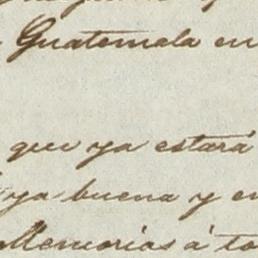 Guatemala en
que ya estará
ya buena y en
Memorias á to